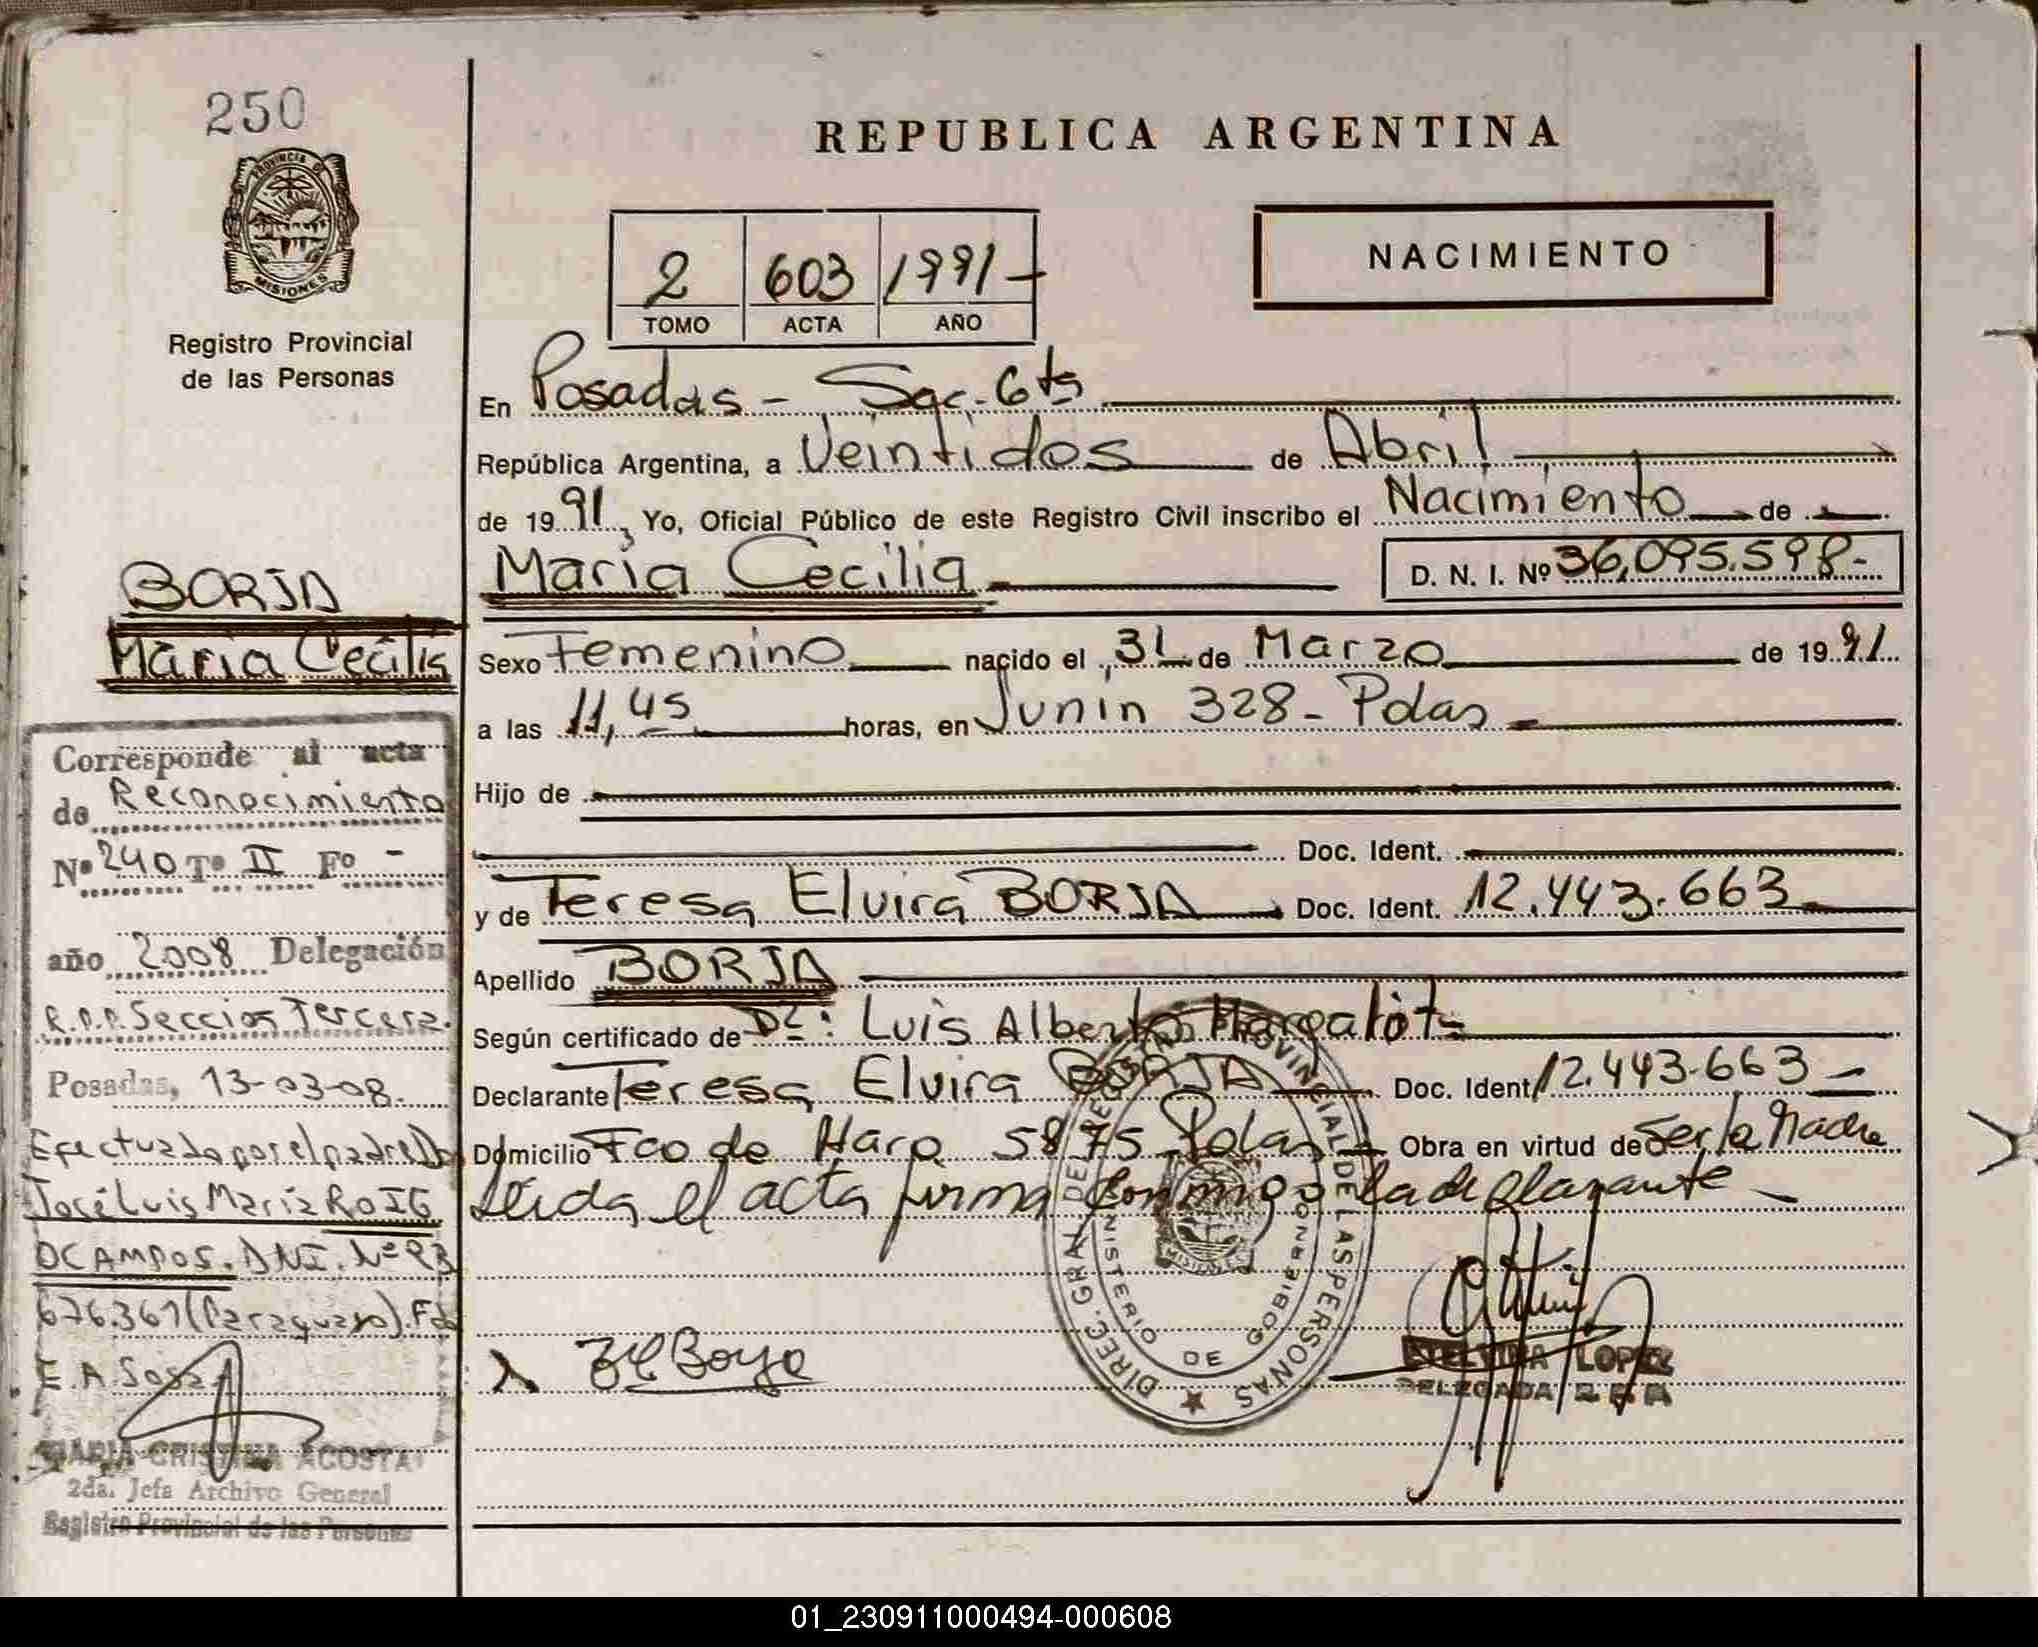 250
PROVINCIA DE
MISIONES
Registro Provincial
de las Personas
REPUBLICA ARGENTINA
2 603 1991-
TOMO ACTA AÑO
NACIMIENTO
En Posadas - Sec. 6ta
República Argentina, a Veintidos de Abril
de 1991, Yo, Oficial Público de este Registro Civil inscribo el Nacimiento de
María Cecilia D. N. I. Nº 36,095.598-
Sexo Femenino nacido el 31 de Marzo de 1991
a las 11,45 horas, en Junín 328 - Pdas
Hijo de
Doc. Ident.
y de Teresa Elvira BORJA Doc. Ident. 12.443.663
Apellido BORJA
Según certificado de Dr: Luis Alberto Margalot
Declarante Teresa Elvira BORJA Doc. Ident 12.443.663
Domicilio Fco de Haro 5875 Pdas Obra en virtud de Ser la Madre
Leida el acta firma conmigo la declarante
DIREC. GRAL DE REGISTRO PROVINCIAL DE LAS PERSONAS
MINISTERIO DE GOBIERNO
MISIONES
LOPEZ
DELEGADA
BORJA
María Cecilia
Corresponde al acta
de Reconocimiento
Nº 240 Tº II Fº -
año 2008 Delegación
R.P.P. Seccion Tercera.
Posadas, 13-03-08.
Efectuado por el padre Dn
José Luis María ROIG
OCAMPOS. DNI. Nº 93
676.361 (Paraguayo). Fdo
E. A. Sosa
MARIA CRISTINA ACOSTA
2da. Jefa Archivo General
Registro Provincial de las Personas
01_230911000494-000608